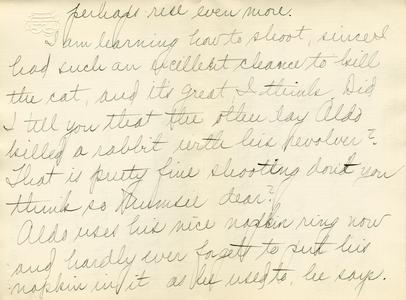 perhaps rise even more.
I am learning how to shoot, since I
had such an excellent chance to kill
the cat, and its great I think. Did
I tell you that the other day Aldo
killed a rabbit with his revolver?
That is pretty fine shooting don't you
think so Mumsie dear?
Aldo uses his nice napkin ring now
and hardly ever forgets to put his
napkin in it as he used to, he says.